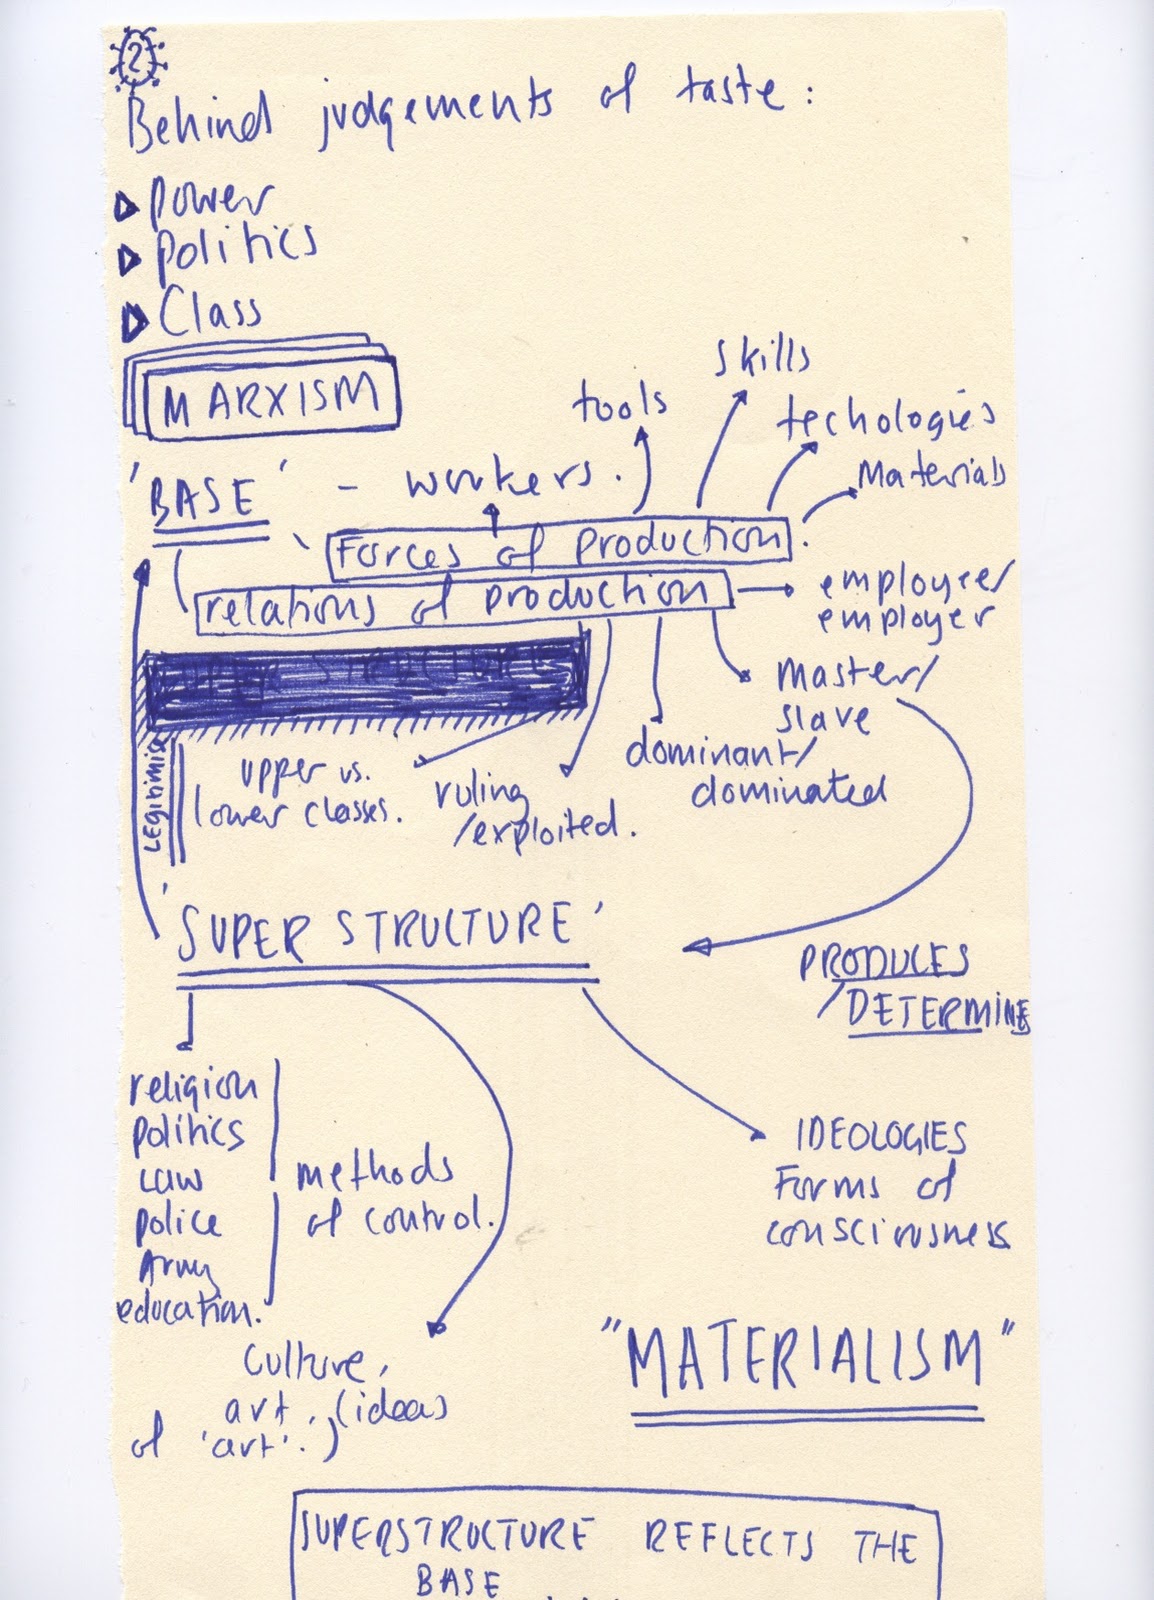 2
Behind judgements of taste:
Power
Politics
Class
MARXISM
'BASE' - workers.
tools
skills
techologies
Materials
Forces of production.
relations of production
employee/
employer
Master/
slave
dominant/
dominated
ruling
/exploited.
upper vs.
lower classes.
Legitimise
'SUPER STRUCTURE'
PRODUCES
/DETERMINE
religion
politics
Law
police
Army
education.
methods
of control.
IDEOLOGIES
Forms of
consciousness
culture,
art. (ideas
of 'art'.)
"MATERIALISM"
SUPERSTRUCTURE REFLECTS THE
BASE